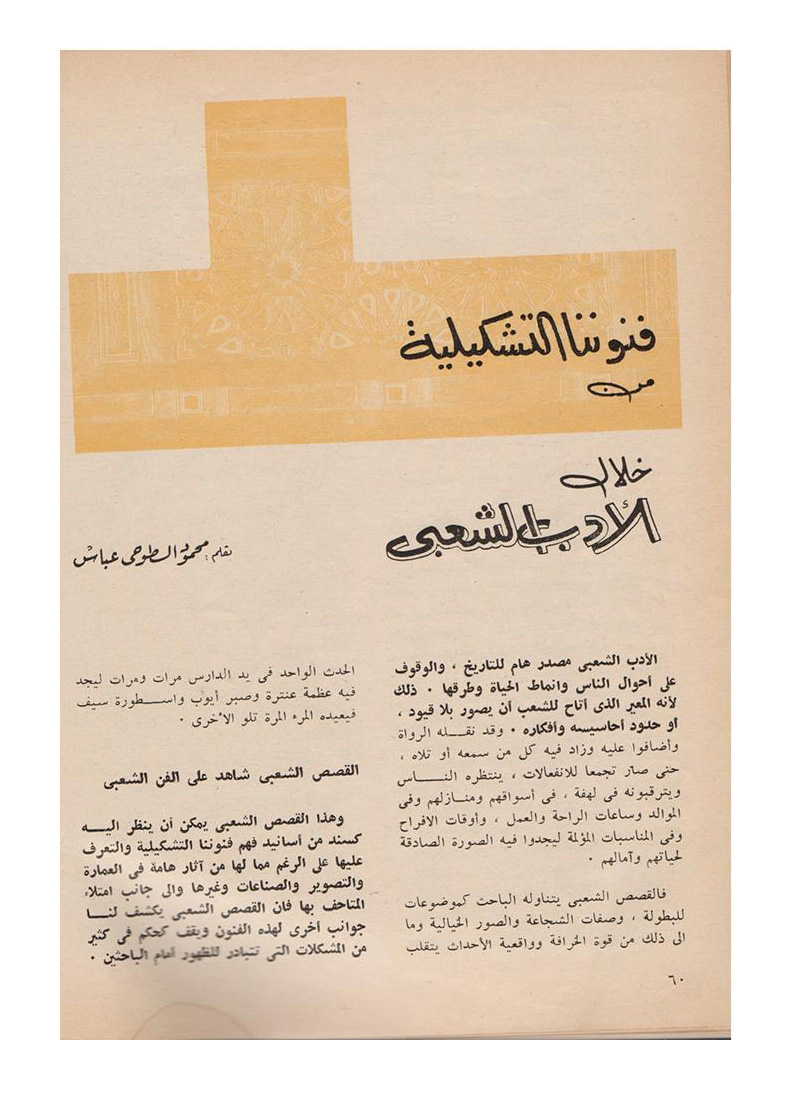 فنوننا التشكيلية
من
خلال
الأدب الشعبى
بقلم : محمود السطوحى عباس
الأدب الشعبى مصدر هام للتاريخ ، والوقوف
على أحوال الناس وانماط الحياة وطرقها . ذلك
لأنه المعبر الذى أتاح للشعب أن يصور بلا قيود ،
او حدود أحاسيسه وأفكاره . وقد نقـــله الرواة
وأضافوا عليه وزاد فيه كل من سمعه أو تلاه ،
حتى صار تجمعا للانفعالات ، ينتظره النـــاس
ويترقبونه فى لهفة ، فى أسواقهم ومنــازلهم وفى
الموالد وساعات الراحة والعمل ، وأوقات الافراح
وفى المناسبات المؤلمة ليجدوا فيه الصورة الصادقة
لحياتهم وآمالهم .
فالقصص الشعبى يتناوله الباحث كموضوعات
للبطولة ، وصفات الشجاعة والصور الخيالية وما
الى ذلك من قوة الخرافة وواقعية الأحداث يتقلب
الحدث الواحد فى يد الدارس مرات ومرات ليجد
فيه عظمة عنترة وصبر أيوب واســـطورة سيف
فيعيده المرء المرة تلو الأخرى .
القصص الشعبى شاهد على الفن الشعبى
وهذا القصص الشعبى يمكن أن ينظر اليـــه
كسند من أسانيد فهم فنوننا التشكيلية والتعرف
عليها على الرغم مما لها من آثار هامة فى العمارة
والتصوير والصناعات وغيرها والى جانب امتلاء
المتاحف بها فان القصص الشعبى يكشف لنـــا
جوانب أخرى لهذه الفنون ويقف كحكم فى كثير
من المشكلات التى تتبادر للظهور أمام الباحثين .
٦٠